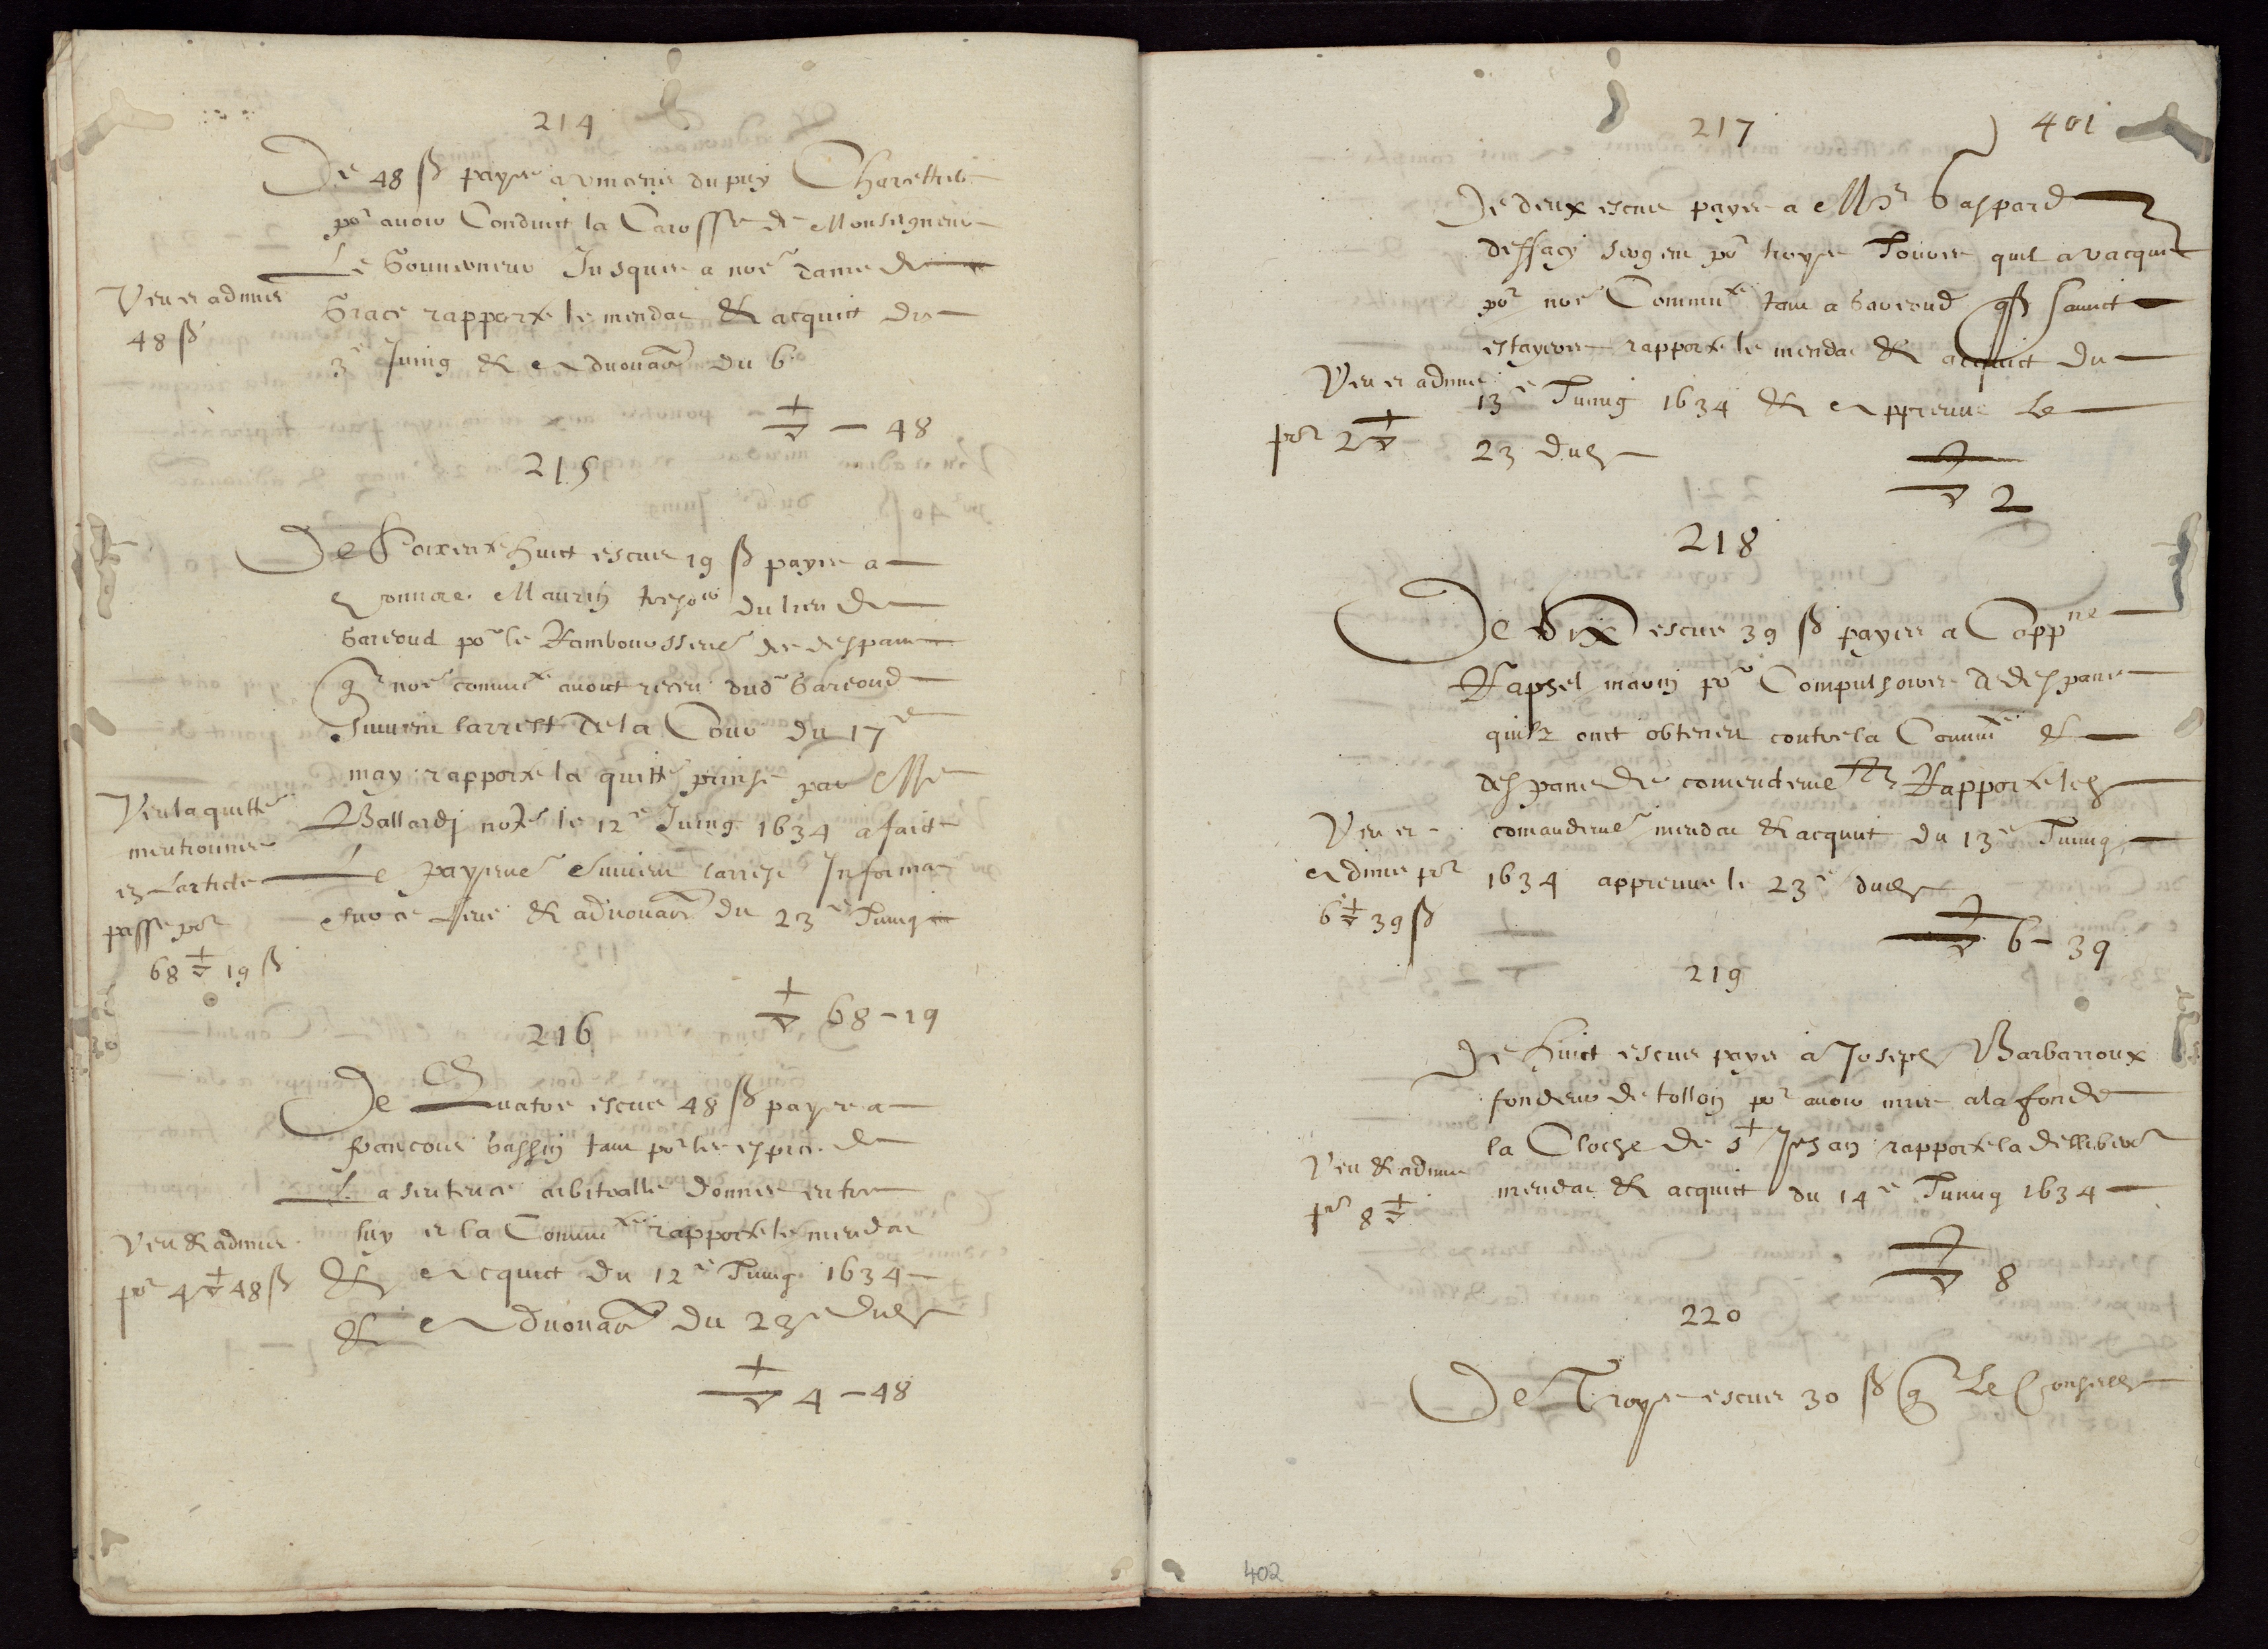 214
De 48 ß payes a vincens dupuy Charettier
por avoir Conduict la Carosse de Monseigneur
Le Gouverneur Jusques a nore dame de
Grace rapporte le mendat & acquict du
3e Juing & Advouaon du 6
Veu et admis
48 ß
48
215
De Soixente huict escus 19 ß payes a
Honnore Maurin tresor du lieu de
Gareoud por le Rambourssement des despans
qe nore commte avoict receu dud Gareoud
Suivent larrest de la Cour du 17e
may rapporte la quitte prinse par Me
Ballardj notre le 12e Juing 1634 a faict
Le payement Suivent larrest Informa
sur ce fene & advouaon du 23e Juing
Veu la quitte
mentionnee
en Larticle
passe por
68 19 ß
68 - 19
216
De Quatre escus 48 ß payes a
francois Gassin tant por les espices de
La sentence arbitralle donnee entre
luy et la Commte rapporte le mendat
& Acquict du 12e Juing 1634
& Advouaon du 23e dud
Veu & admis
por 4 48 ß
4 - 48
217
401
De deux escus payes a Mr Gaspard
deffacy sergent por troys Jours quil a vacque
por nore Commte tant a Gareoud qe Sainct
estayere rapporte le mendat & acquict du
13e Juing 1634 & Appreuve Le
23 dud
Veu et admis
por 2
2
218
De Six escus 39 ß payes a Cappne
Raphel maurin por Compulsoires & despans
quilz onct obteneu contre la Commte &
despans de comendement Rapporte led
comandemt mendat & acquict du 13e Juing
1634 appreuve le 23e dud
Veu et
Admis por
6 39 ß
6 - 39
219
De huict escus payes a Joseph Barbarroux
fondeur de tollon por avoir mise a la fonde
la Cloche de St Jehan rapporte la delliberon
mendat & acquict du 14e Juing 1634
Veu & admis
por 8
8
220
De Troys escus 30 ß qe Le Conseilh
402